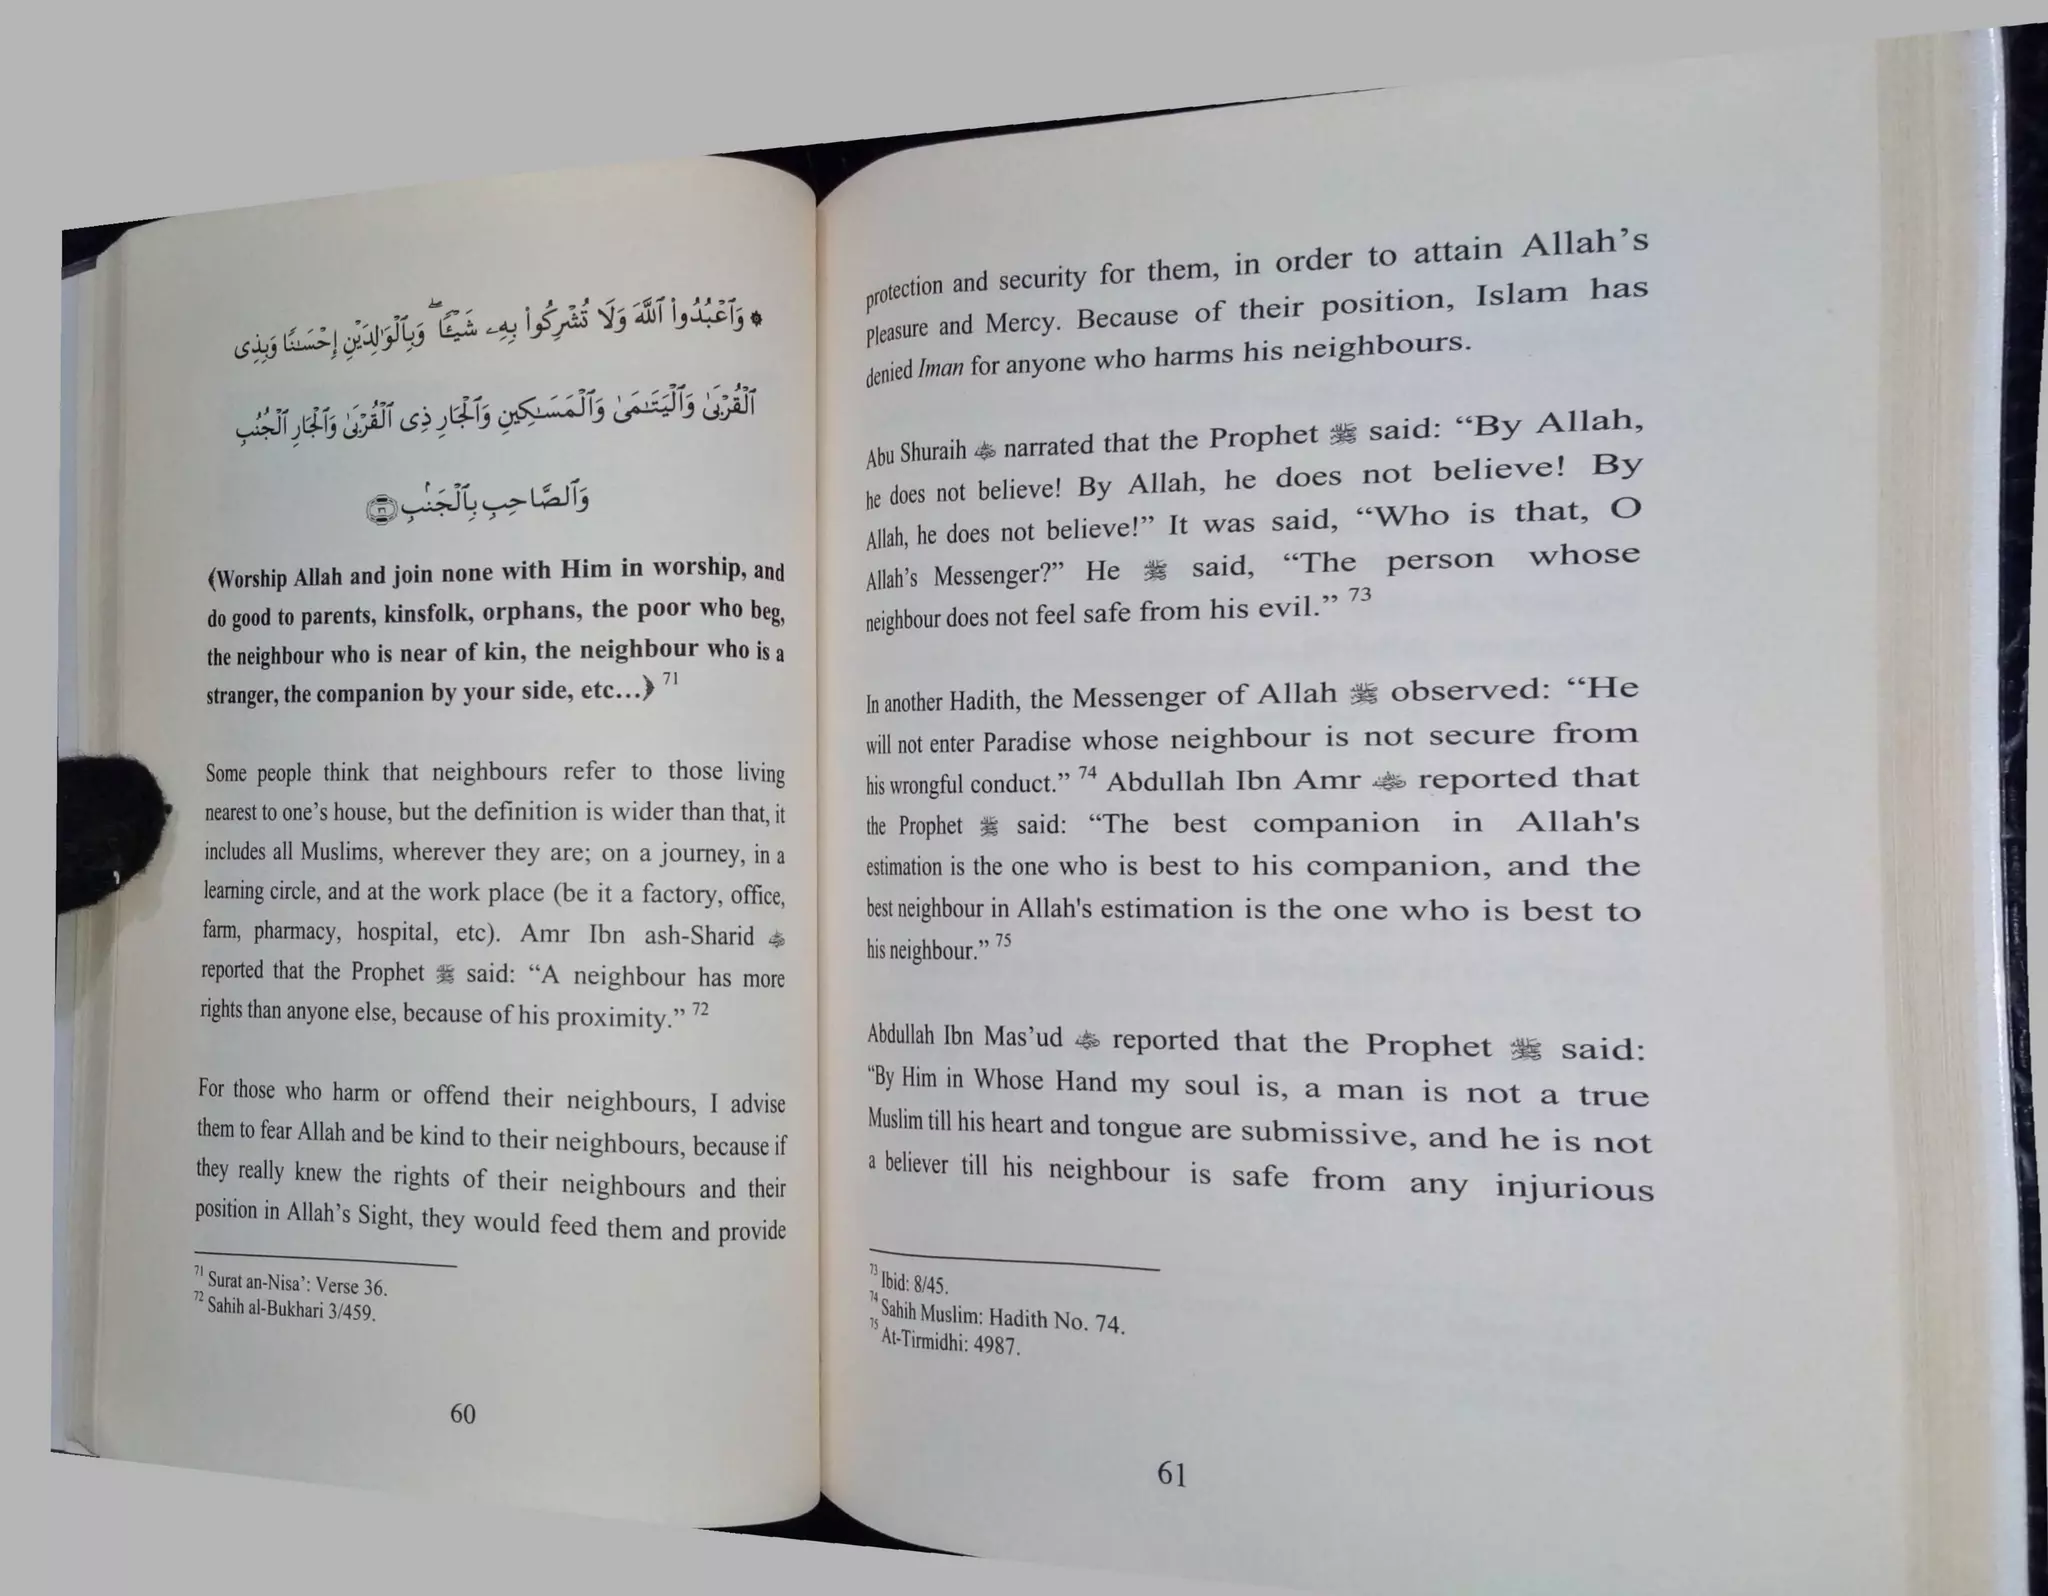 ۞ وَٱعْبُدُوا۟ ٱللَّهَ وَلَا تُشْرِكُوا۟ بِهِۦ شَيْـًٔا ۖ وَبِٱلْوَٰلِدَيْنِ إِحْسَـٰنًا وَبِذِى
ٱلْقُرْبَىٰ وَٱلْيَتَـٰمَىٰ وَٱلْمَسَـٰكِينِ وَٱلْجَارِ ذِى ٱلْقُرْبَىٰ وَٱلْجَارِ ٱلْجُنُبِ
وَٱلصَّاحِبِ بِٱلْجَنۢبِ ٣٦
﴾Worship Allah and join none with Him in worship, and
do good to parents, kinsfolk, orphans, the poor who beg,
the neighbour who is near of kin, the neighbour who is a
stranger, the companion by your side, etc...﴿ 71
Some people think that neighbours refer to those living
nearest to one’s house, but the definition is wider than that, it
includes all Muslims, wherever they are; on a journey, in a
learning circle, and at the work place (be it a factory, office,
farm, pharmacy, hospital, etc). Amr Ibn ash-Sharid
reported that the Prophet ﷺ said: “A neighbour has more
rights than anyone else, because of his proximity.” 72
For those who harm or offend their neighbours, I advise
them to fear Allah and be kind to their neighbours, because if
they really knew the rights of their neighbours and their
position in Allah’s Sight, they would feed them and provide
71 Surat an-Nisa’: Verse 36.
72 Sahih al-Bukhari 3/459.
60
protection and security for them, in order to attain Allah’s
Pleasure and Mercy. Because of their position, Islam has
denied Iman for anyone who harms his neighbours.
Abu Shuraih narrated that the Prophet ﷺ said: “By Allah,
he does not believe! By Allah, he does not believe! By
Allah, he does not believe!” It was said, “Who is that, O
Allah’s Messenger?” He ﷺ said, “The person whose
neighbour does not feel safe from his evil.” 73
In another Hadith, the Messenger of Allah ﷺ observed: “He
will not enter Paradise whose neighbour is not secure from
his wrongful conduct.” 74 Abdullah Ibn Amr reported that
the Prophet ﷺ said: “The best companion in Allah's
estimation is the one who is best to his companion, and the
best neighbour in Allah's estimation is the one who is best to
his neighbour.” 75
Abdullah Ibn Mas’ud reported that the Prophet ﷺ said:
“By Him in Whose Hand my soul is, a man is not a true
Muslim till his heart and tongue are submissive, and he is not
a believer till his neighbour is safe from any injurious
73 Ibid: 8/45.
74 Sahih Muslim: Hadith No. 74.
75 At-Tirmidhi: 4987.
61